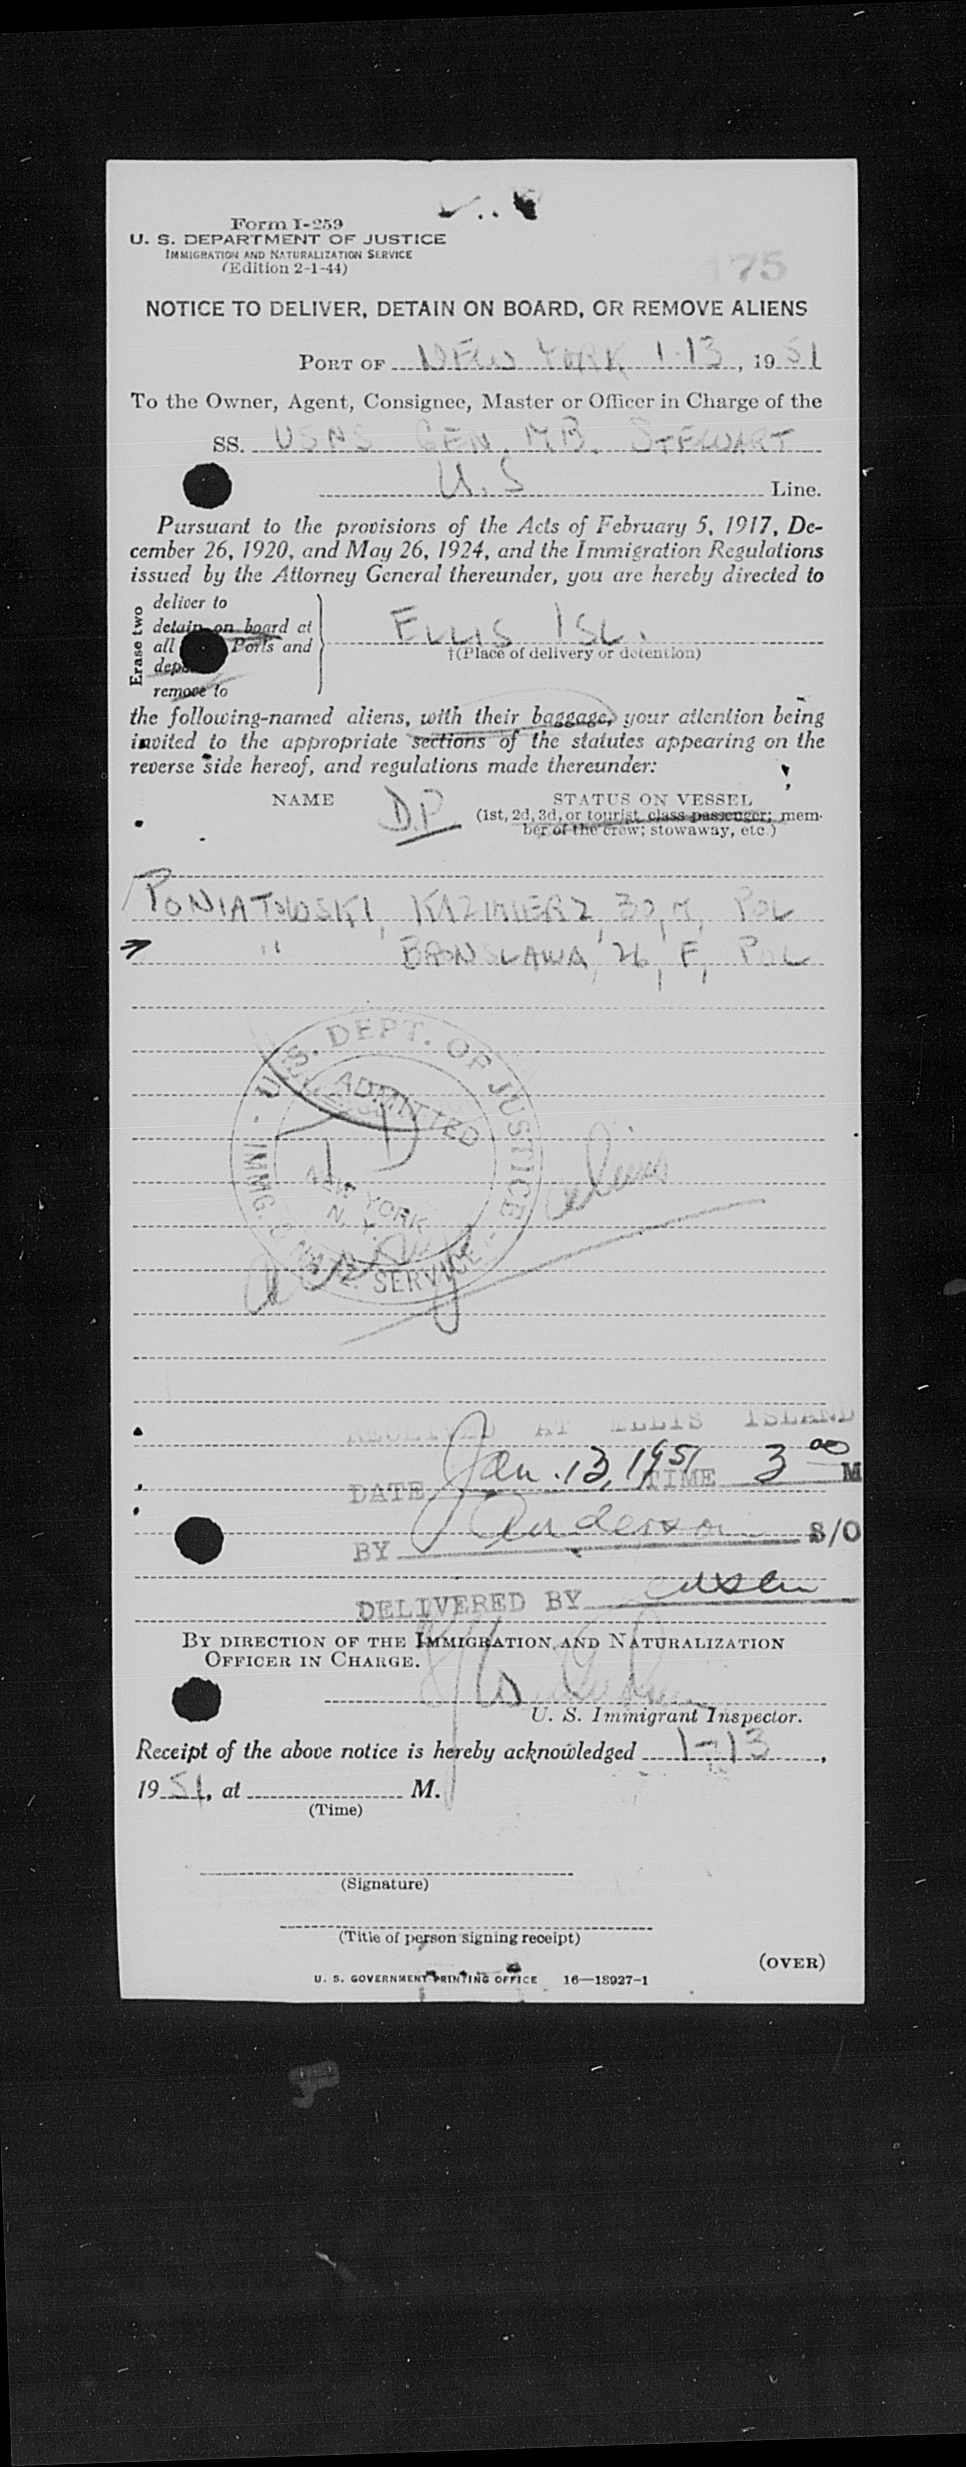 Form I-259
U. S. DEPARTMENT OF JUSTICE
IMMIGRATION AND NATURALIZATION SERVICE
(Edition 2-1-44)
175
NOTICE TO DELIVER, DETAIN ON BOARD, OR REMOVE ALIENS
PORT OF NEW YORK 1-13, 1951
To the Owner, Agent, Consignee, Master or Officer in Charge of the
SS. USNS GEN. M.B. STEWART
U.S Line.
Pursuant to the provisions of the Acts of February 5, 1917, De-
cember 26, 1920, and May 26, 1924, and the Immigration Regulations
issued by the Attorney General thereunder, you are hereby directed to
Erase two
deliver to
detain on board at
all Ports and
remove to
ELLIS ISL.
†(Place of delivery or detention)
the following-named aliens, with their baggage, your attention being
invited to the appropriate sections of the statutes appearing on the
reverse side hereof, and regulations made thereunder:
NAME D.P STATUS ON VESSEL
(1st, 2d, 3d, or tourist class passenger; mem-
ber of the crew; stowaway, etc.)
PONIATOWSKI, KAZIMIERZ, 30, M, POL
" BRONSLAWA, 26, F, POL
U.S. DEPT. OF JUSTICE
ADMITTED
NEW YORK
N. Y.
IMMG. & NATZ. SERVICE
RECEIVED AT ELLIS ISLAND
DATE Jan. 13, 1951 TIME 3 00 M
BY Anderson S/O
DELIVERED BY
BY DIRECTION OF THE IMMIGRATION AND NATURALIZATION
OFFICER IN CHARGE.
U. S. Immigrant Inspector.
Receipt of the above notice is hereby acknowledged 1-13,
1951, at M.
(Time)
(Signature)
(Title of person signing receipt)
(OVER)
U. S. GOVERNMENT PRINTING OFFICE 16—18927-1